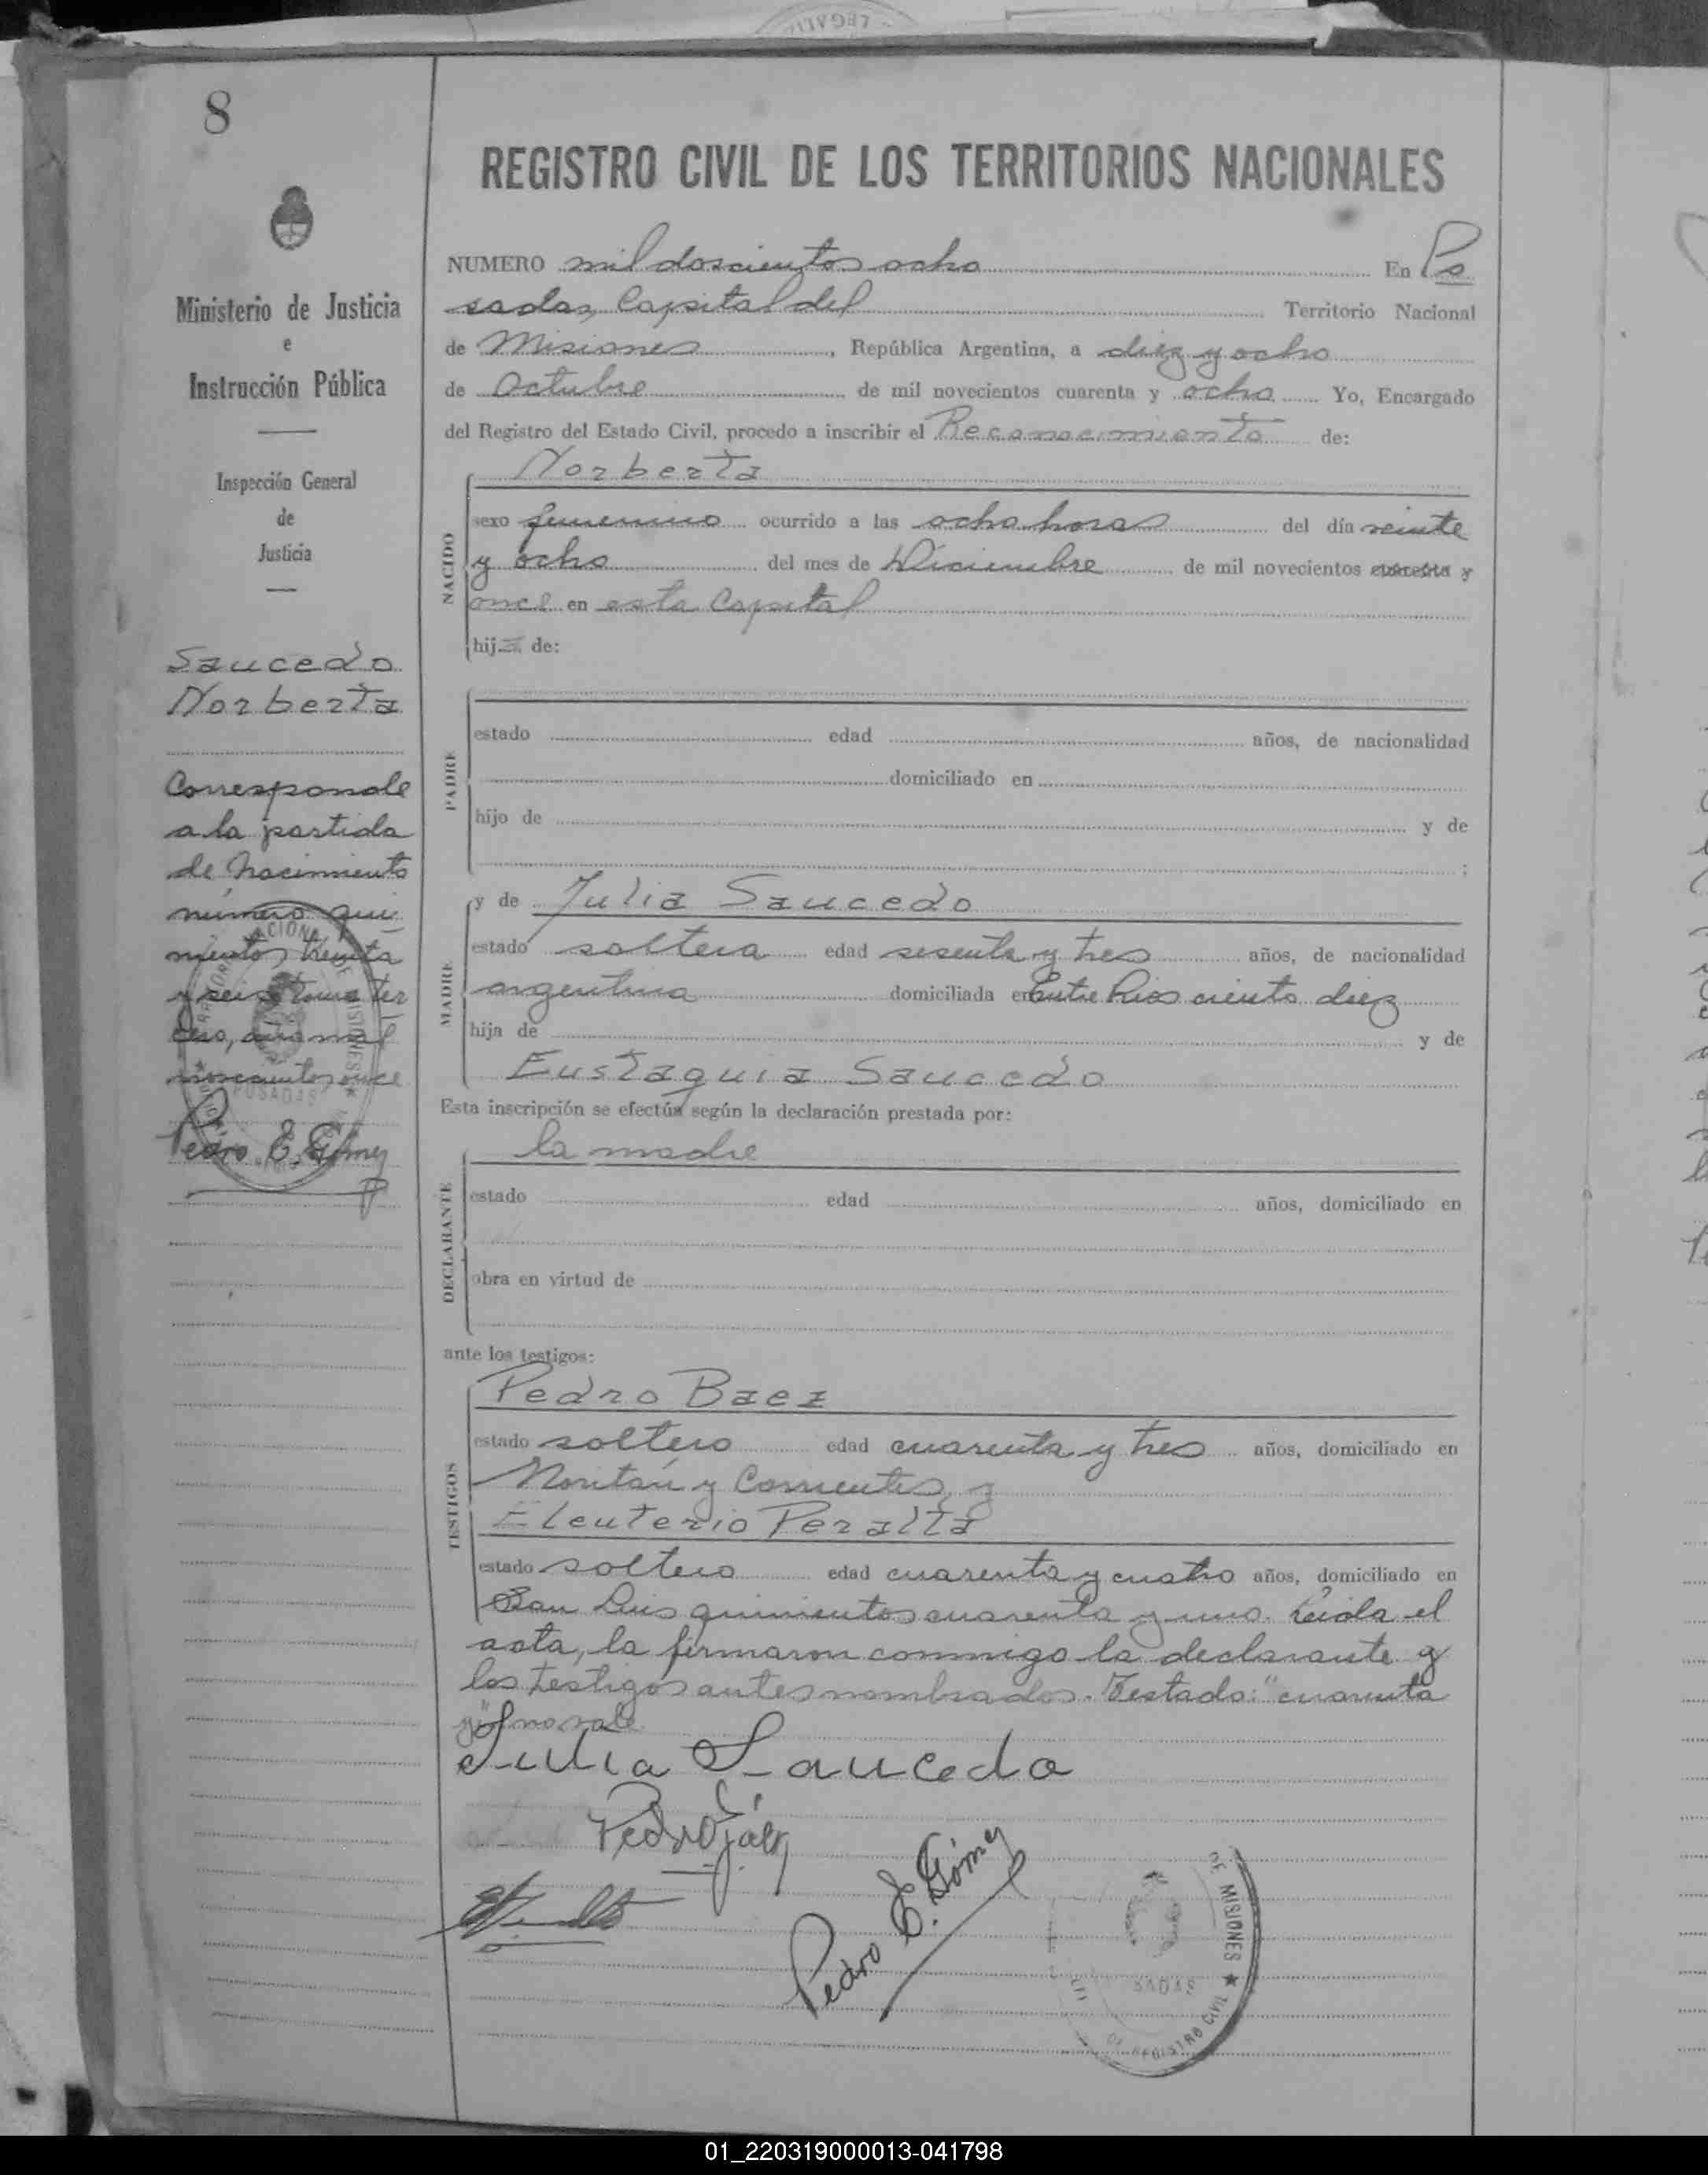 LEGALI
8
Ministerio de Justicia
e
Instrucción Pública
Inspección General
de
Justicia
Saucedo
Norberta
Corresponde
a la partida
de Nacimiento
número qui
nientos treinta
y seis tomo ter
cero, año mil
novecientos once
Pedro E. Gómez
REGISTRO CIVIL DE LOS TERRITORIOS NACIONALES
NUMERO mil doscientos ocho En Po
sadas, Capital del Territorio Nacional
de Misiones, República Argentina, a diez y ocho
de Octubre de mil novecientos cuarenta y ocho Yo, Encargado
del Registro del Estado Civil, procedo a inscribir el Reconocimiento de:
NACIDO
Norberta
sexo femenino ocurrido a las ocho horas del día veinte
y ocho del mes de Diciembre de mil novecientos cuarenta y
once en esta Capital
hija de:
PADRE
estado edad años, de nacionalidad
domiciliado en
hijo de y de
;
MADRE
y de Julia Saucedo
estado soltera edad sesenta y tres años, de nacionalidad
argentina domiciliada en Entre Rios ciento diez
hija de y de
Eustaquia Saucedo
Esta inscripción se efectúa según la declaración prestada por:
DECLARANTE
la madre
estado edad años, domiciliado en
obra en virtud de
ante los testigos:
TESTIGOS
Pedro Baez
estado soltero edad cuarenta y tres años, domiciliado en
y Corrientes, y
Eleuterio Peralta
estado soltero edad cuarenta y cuatro años, domiciliado en
San Luis quinientos cuarenta y uno. Leída el
acta, la firmaron conmigo la declarante y
los testigos antes nombrados. Testado: "cuarenta
y" no vale.
Julia Saucedo
Pedro
Pedro E. Gómez
DE MISIONES ★
SADAS
REGISTRO CIVIL
01_220319000013-041798